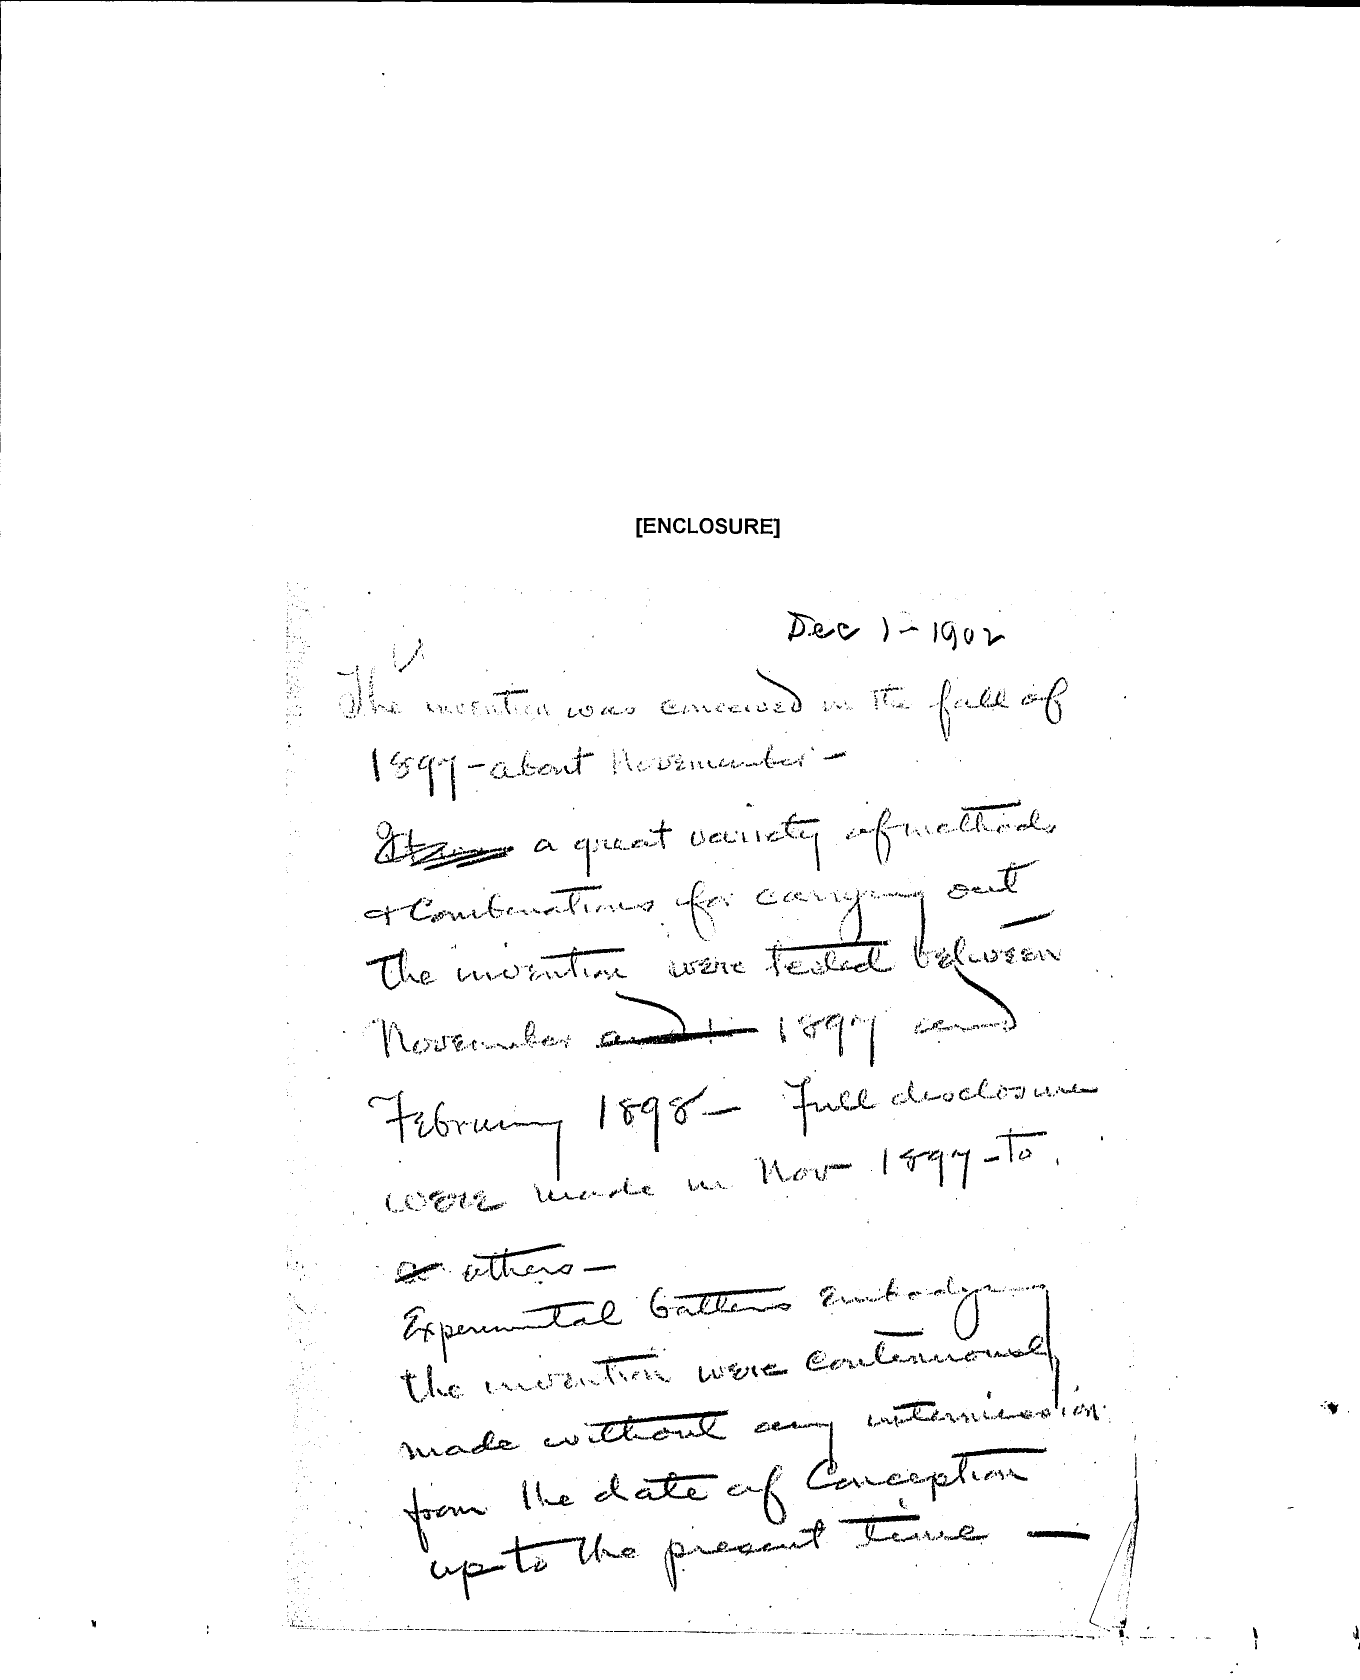 [ENCLOSURE]
Dec 1-1902
The invention was conceived in the fall of
1897-about Novemember-
a great variety of methods
& Combinations for carrying out
the invention were tested between
November and 1 1897 and
February 1898- Full disclosure
were made in Nov 1897-to
others-
Experimental batterys Embodying
the invention were continuously
made without any intermission
from the date of Conception
up to the present time -